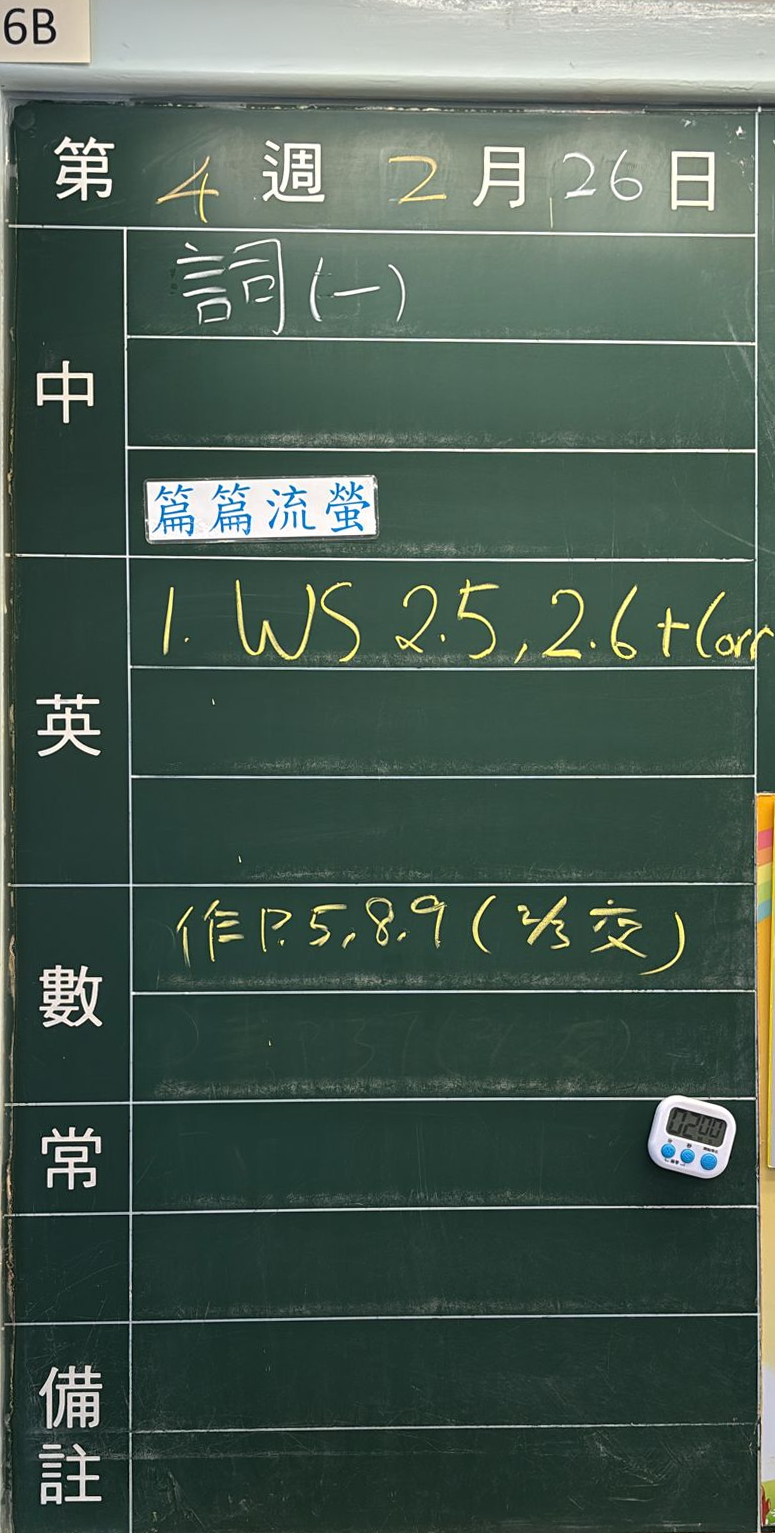 6B
第 4 週 2 月 26 日
中
詞(一)
篇篇流螢
英
1. WS 2.5, 2.6 + Corr
數
作P.5,8,9 (2/3 交)
常
02:00
備註